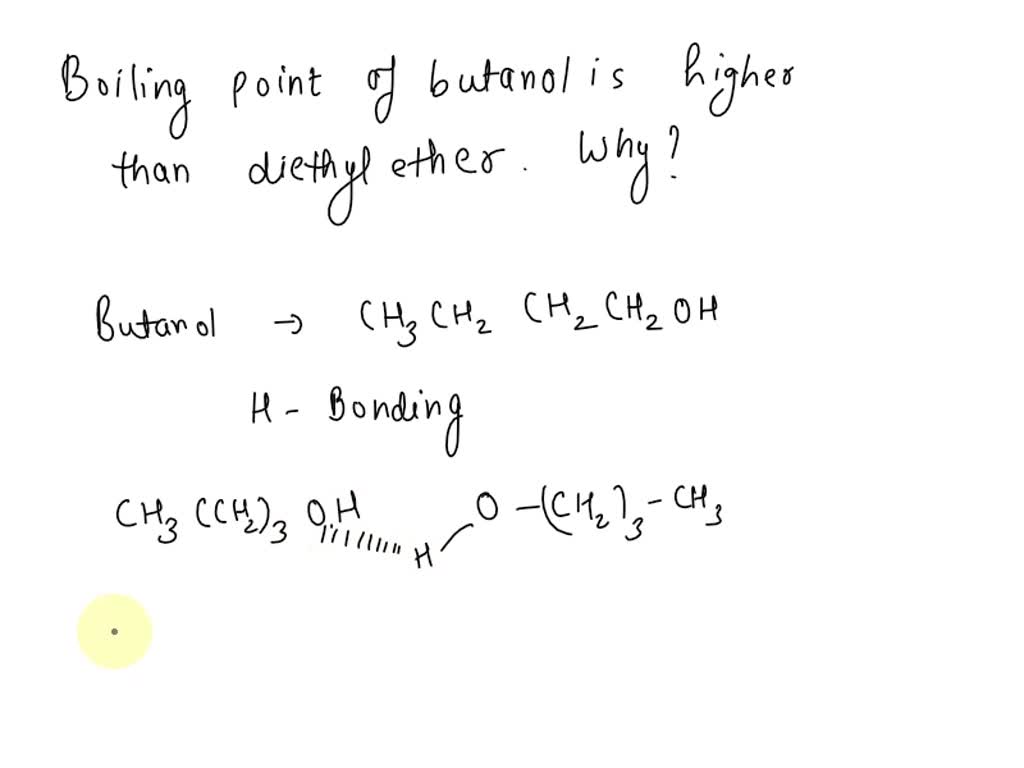 Boiling point of butanol is higher
than diethyl ether. Why?
Butanol → CH₃CH₂ CH₂CH₂OH
H - Bonding
CH₃(CH₂)₃ OH H O-(CH₂)₃-CH₃